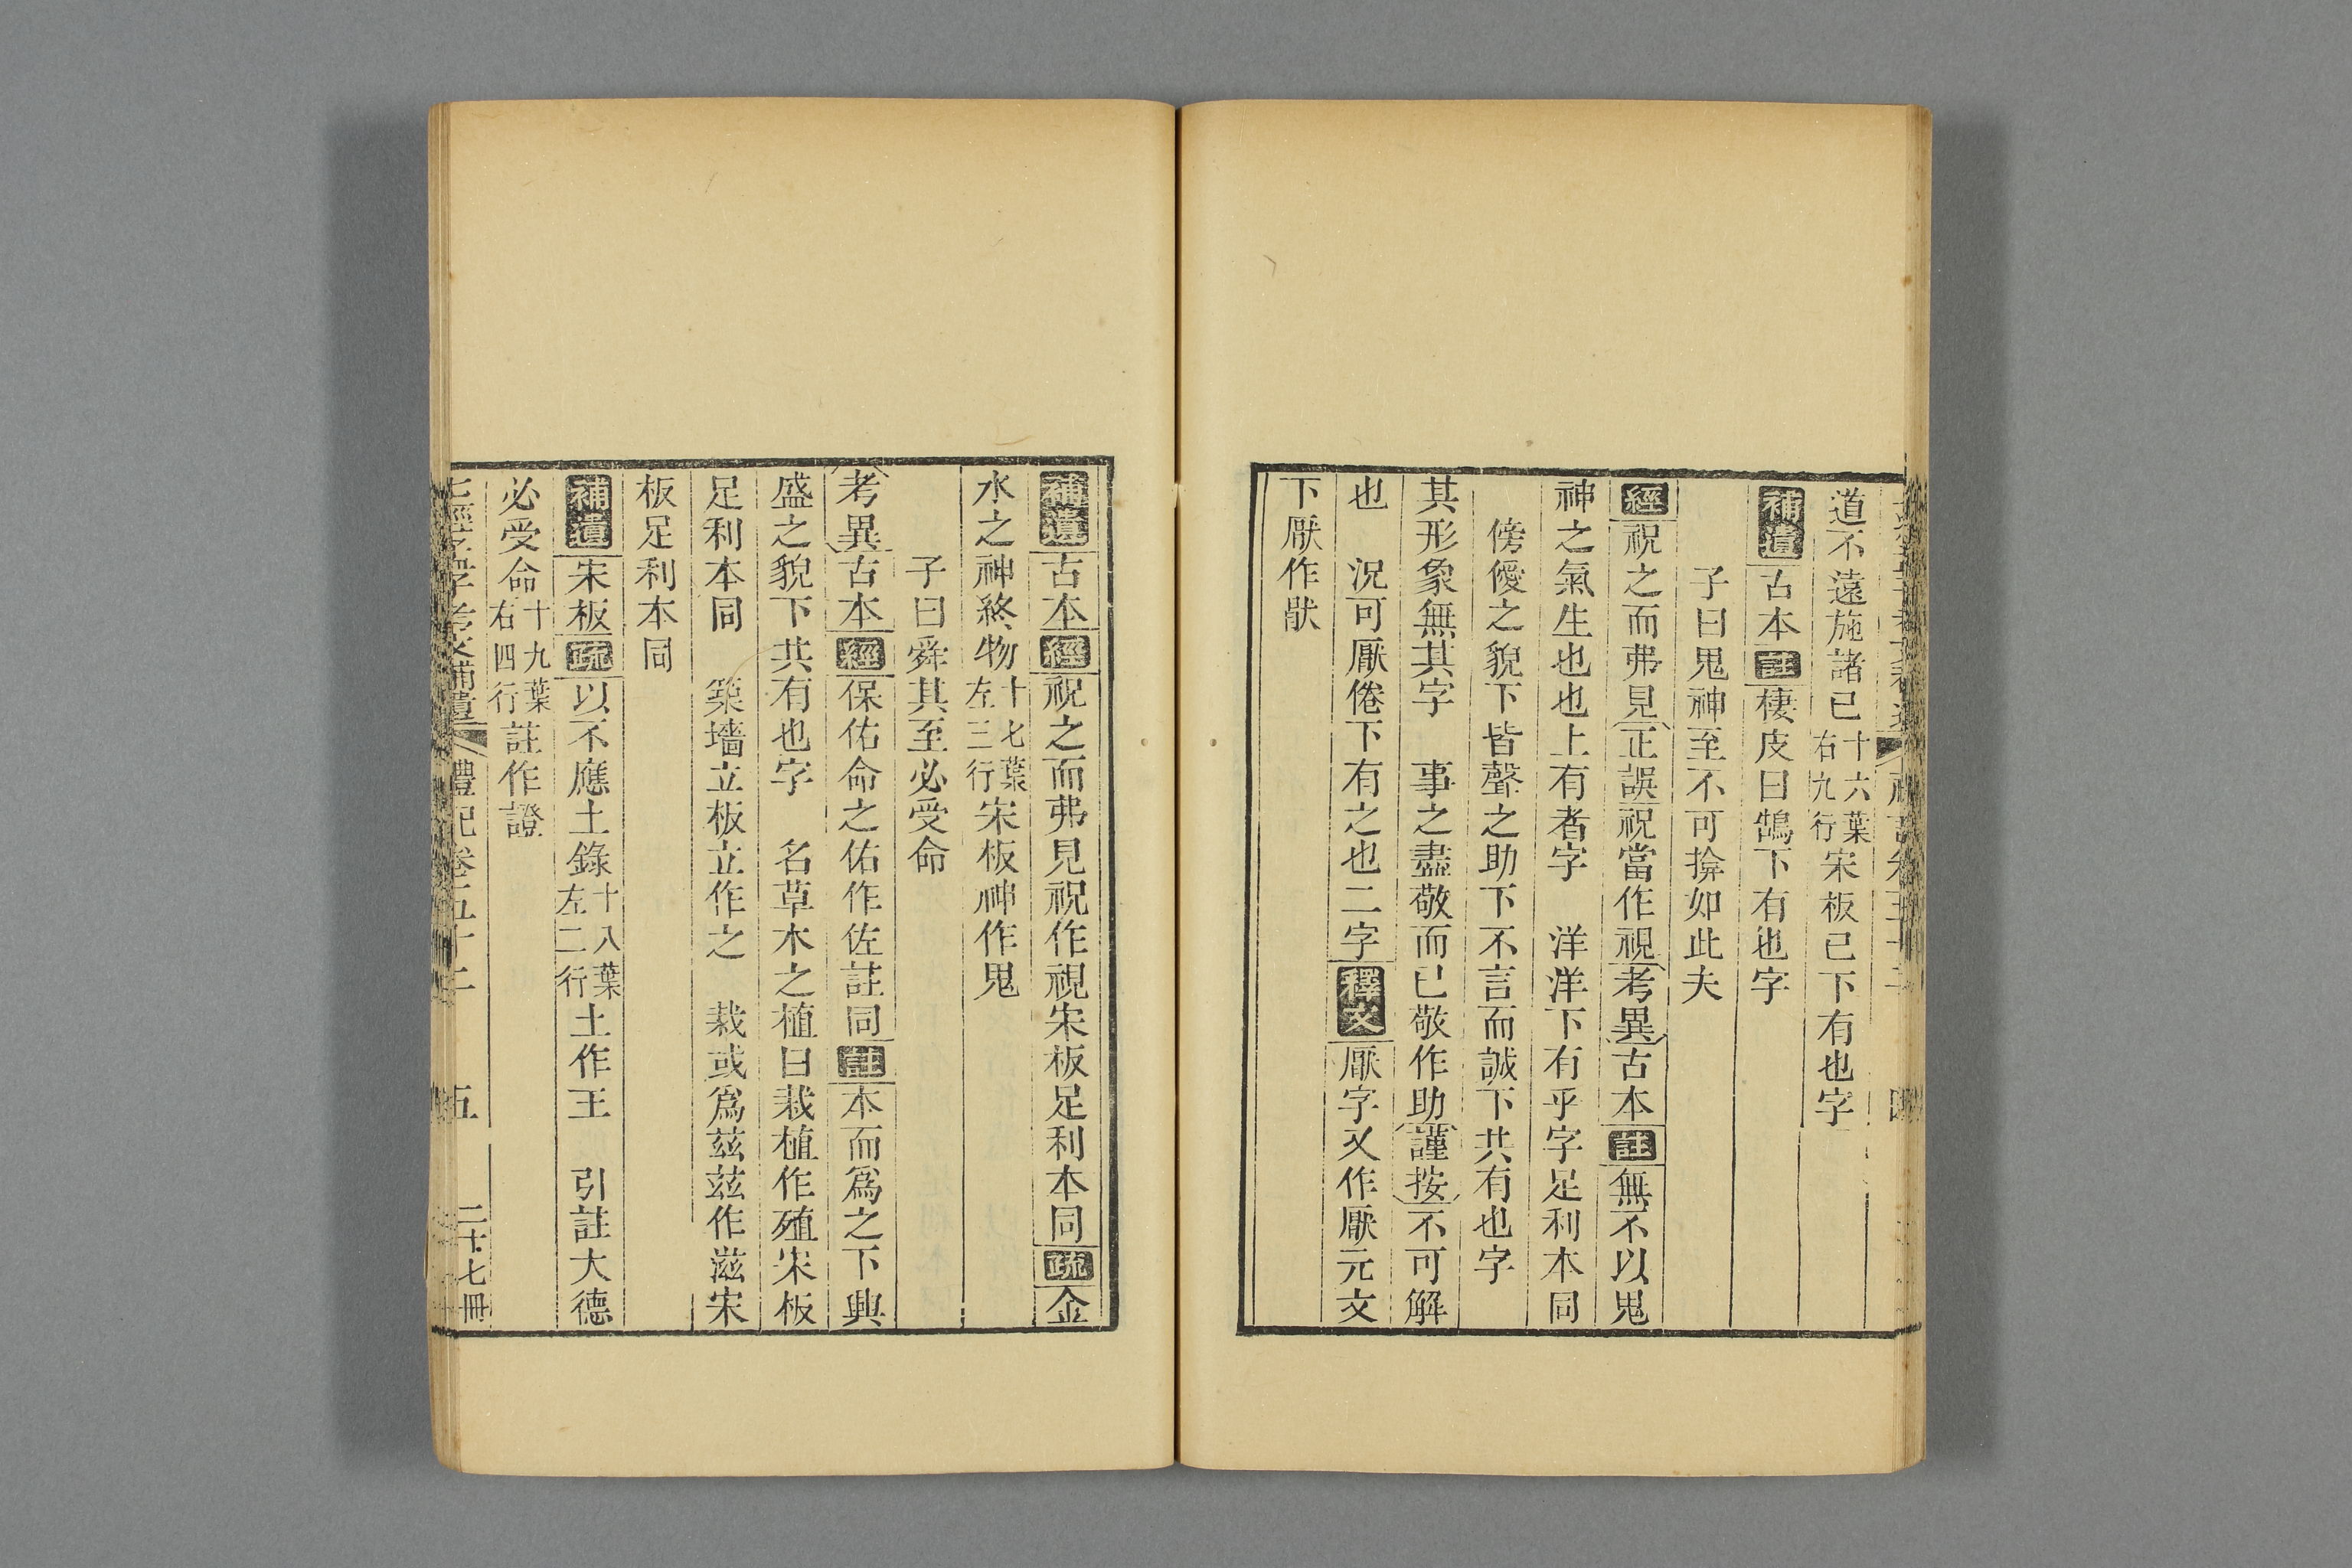 道不遠施諸己十六葉右九行宋板己下有也字
補遺古本註棲皮曰鵠下有也字
子曰鬼神至不可揜如此夫
經祝之而弗見正誤祝當作視考異古本註無不以鬼
神之氣生也也上有者字　洋洋下有乎字足利本同
傍僾之貌下皆聲之助下不言而誠下共有也字
其形象無其字　事之盡敬而已敬作助謹按不可解
也　況可厭倦下有之也二字釋文厭字又作厭元文
下厭作猒
補遺古本經祝之而弗見祝作視宋板足利本同疏金
水之神終物十七葉左三行宋板神作鬼
子曰舜其至必受命
考異古本經保佑命之佑作佐註同註本而爲之下興
盛之貌下共有也字　名草木之植曰栽植作殖宋板
足利本同　築墻立板立作之　栽或爲茲茲作滋宋
板足利本同
補遺宋板疏以不應土錄十八葉左二行土作王　引註大德
必受命十九葉右四行註作證
七經孟子考文補遺　禮記卷五十二　五　二十七冊